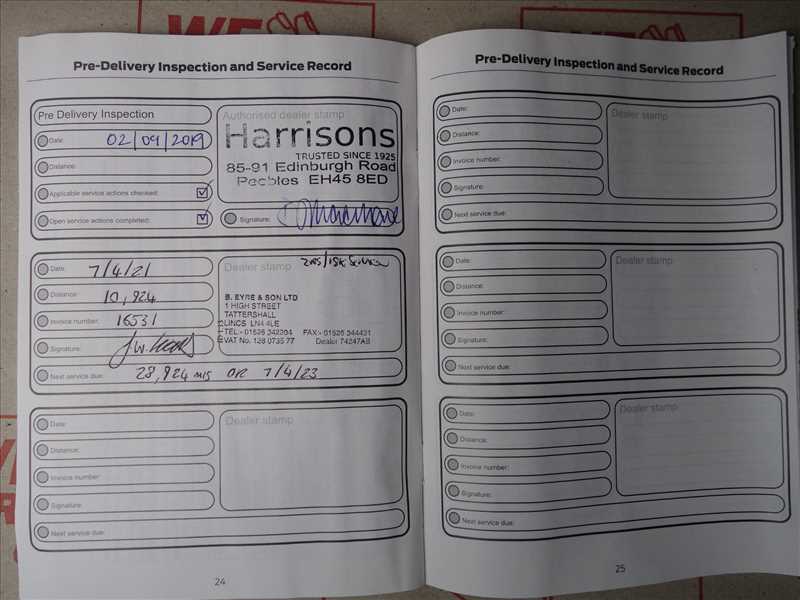 Pre-Delivery Inspection and Service Record
Pre Delivery Inspection
Date: 02/09/2019
Distance:
Applicable service actions checked: ☑
Open service actions completed: ☑
Authorised dealer stamp
Harrisons
TRUSTED SINCE 1925
85-91 Edinburgh Road
Peebles EH45 8ED
Signature:
Date: 7/4/21
Distance: 10,924
Invoice number: 16531
Signature:
Dealer stamp
B. EYRE & SON LTD
1 HIGH STREET
TATTERSHALL
LINCS LN4 4LE
TEL:- 01526 342204 FAX:- 01526 344431
VAT No. 128 0735 77 Dealer 74247AB
Next service due: 28,924 mls OR 7/4/23
Date:
Distance:
Invoice number:
Signature:
Dealer stamp
Next service due:
24
Pre-Delivery Inspection and Service Record
Date:
Distance:
Invoice number:
Signature:
Dealer stamp
Next service due:
Date:
Distance:
Invoice number:
Signature:
Dealer stamp
Next service due:
Date:
Distance:
Invoice number:
Signature:
Dealer stamp
Next service due:
25